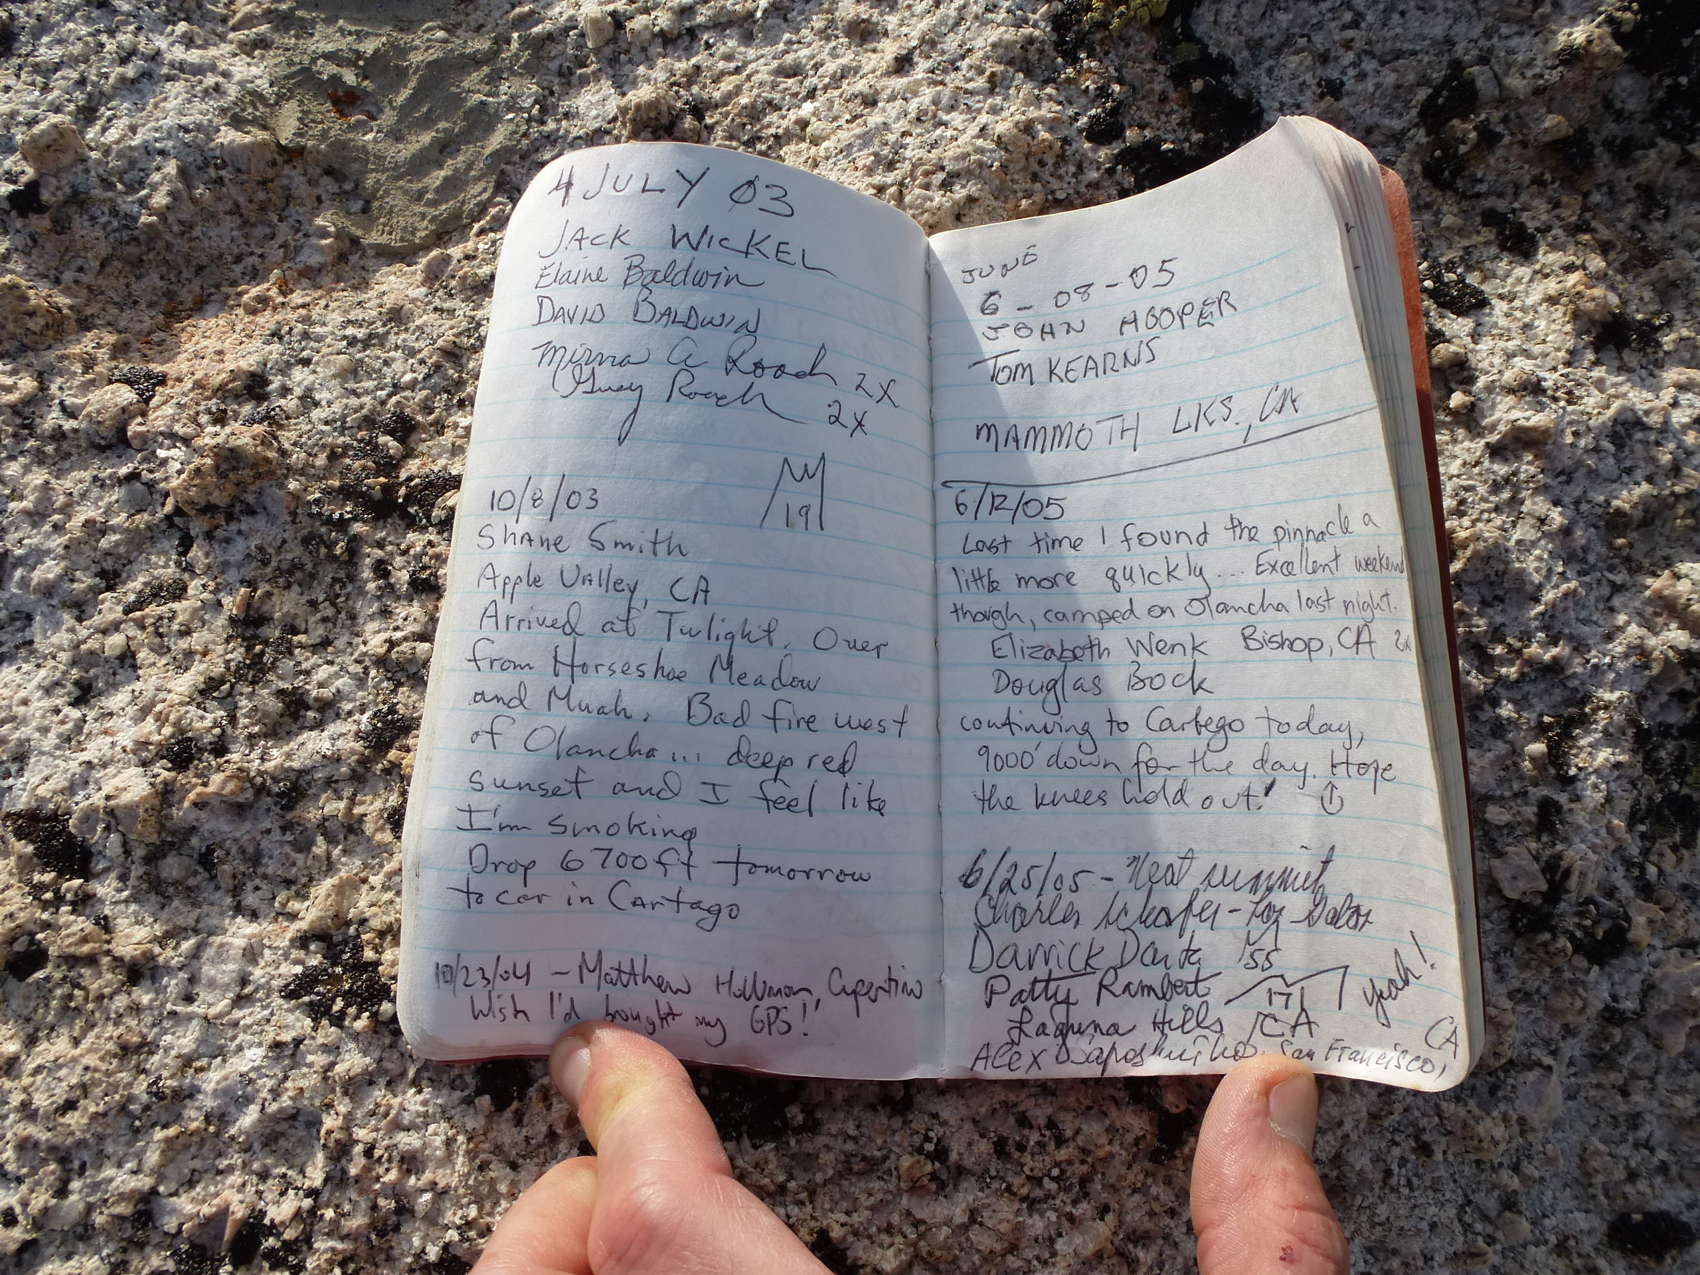 4 JULY 03
JACK WICKEL
Elaine Baldwin
DAVID BALDWIN
Mirna A Roach 2X
Roach 2X
10/8/03
19
Shane Smith
Apple Valley, CA
Arrived at Twlight. Over
from Horseshoe Meadow
and Muah. Bad fire west
of Olancha... deep red
sunset and I feel like
I'm smoking
Drop 6700ft tomorrow
to car in Cartago
10/23/04 - Matthew Cupertino
Wish I'd bought my GPS!
JUNE
6-08-05
JOHN HOOPER
TOM KEARNS
MAMMOTH LKS., CA
6/12/05
Last time I found the pinnacle a
little more quickly... Excellent weekend
though, camped on Olancha last night.
Elizabeth Wenk Bishop, CA 2x
Douglas Bock
continuing to Cartego today,
9000' down for the day. Hope
the knees hold out!
6/25/05 - Neat summit
Charles
Darrick 55
Patty Rambert 171 yeah!
Laguna Hills CA
Alex San Francisco, CA